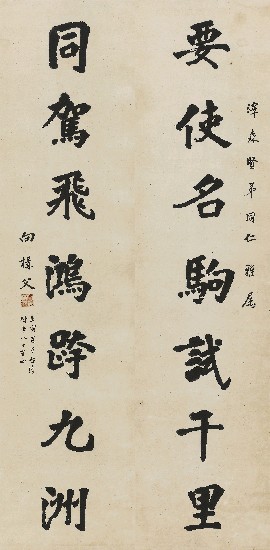 森賢弟同仁雅屬
要使名駒試千里
同駕飛鴻跨九洲
向構父